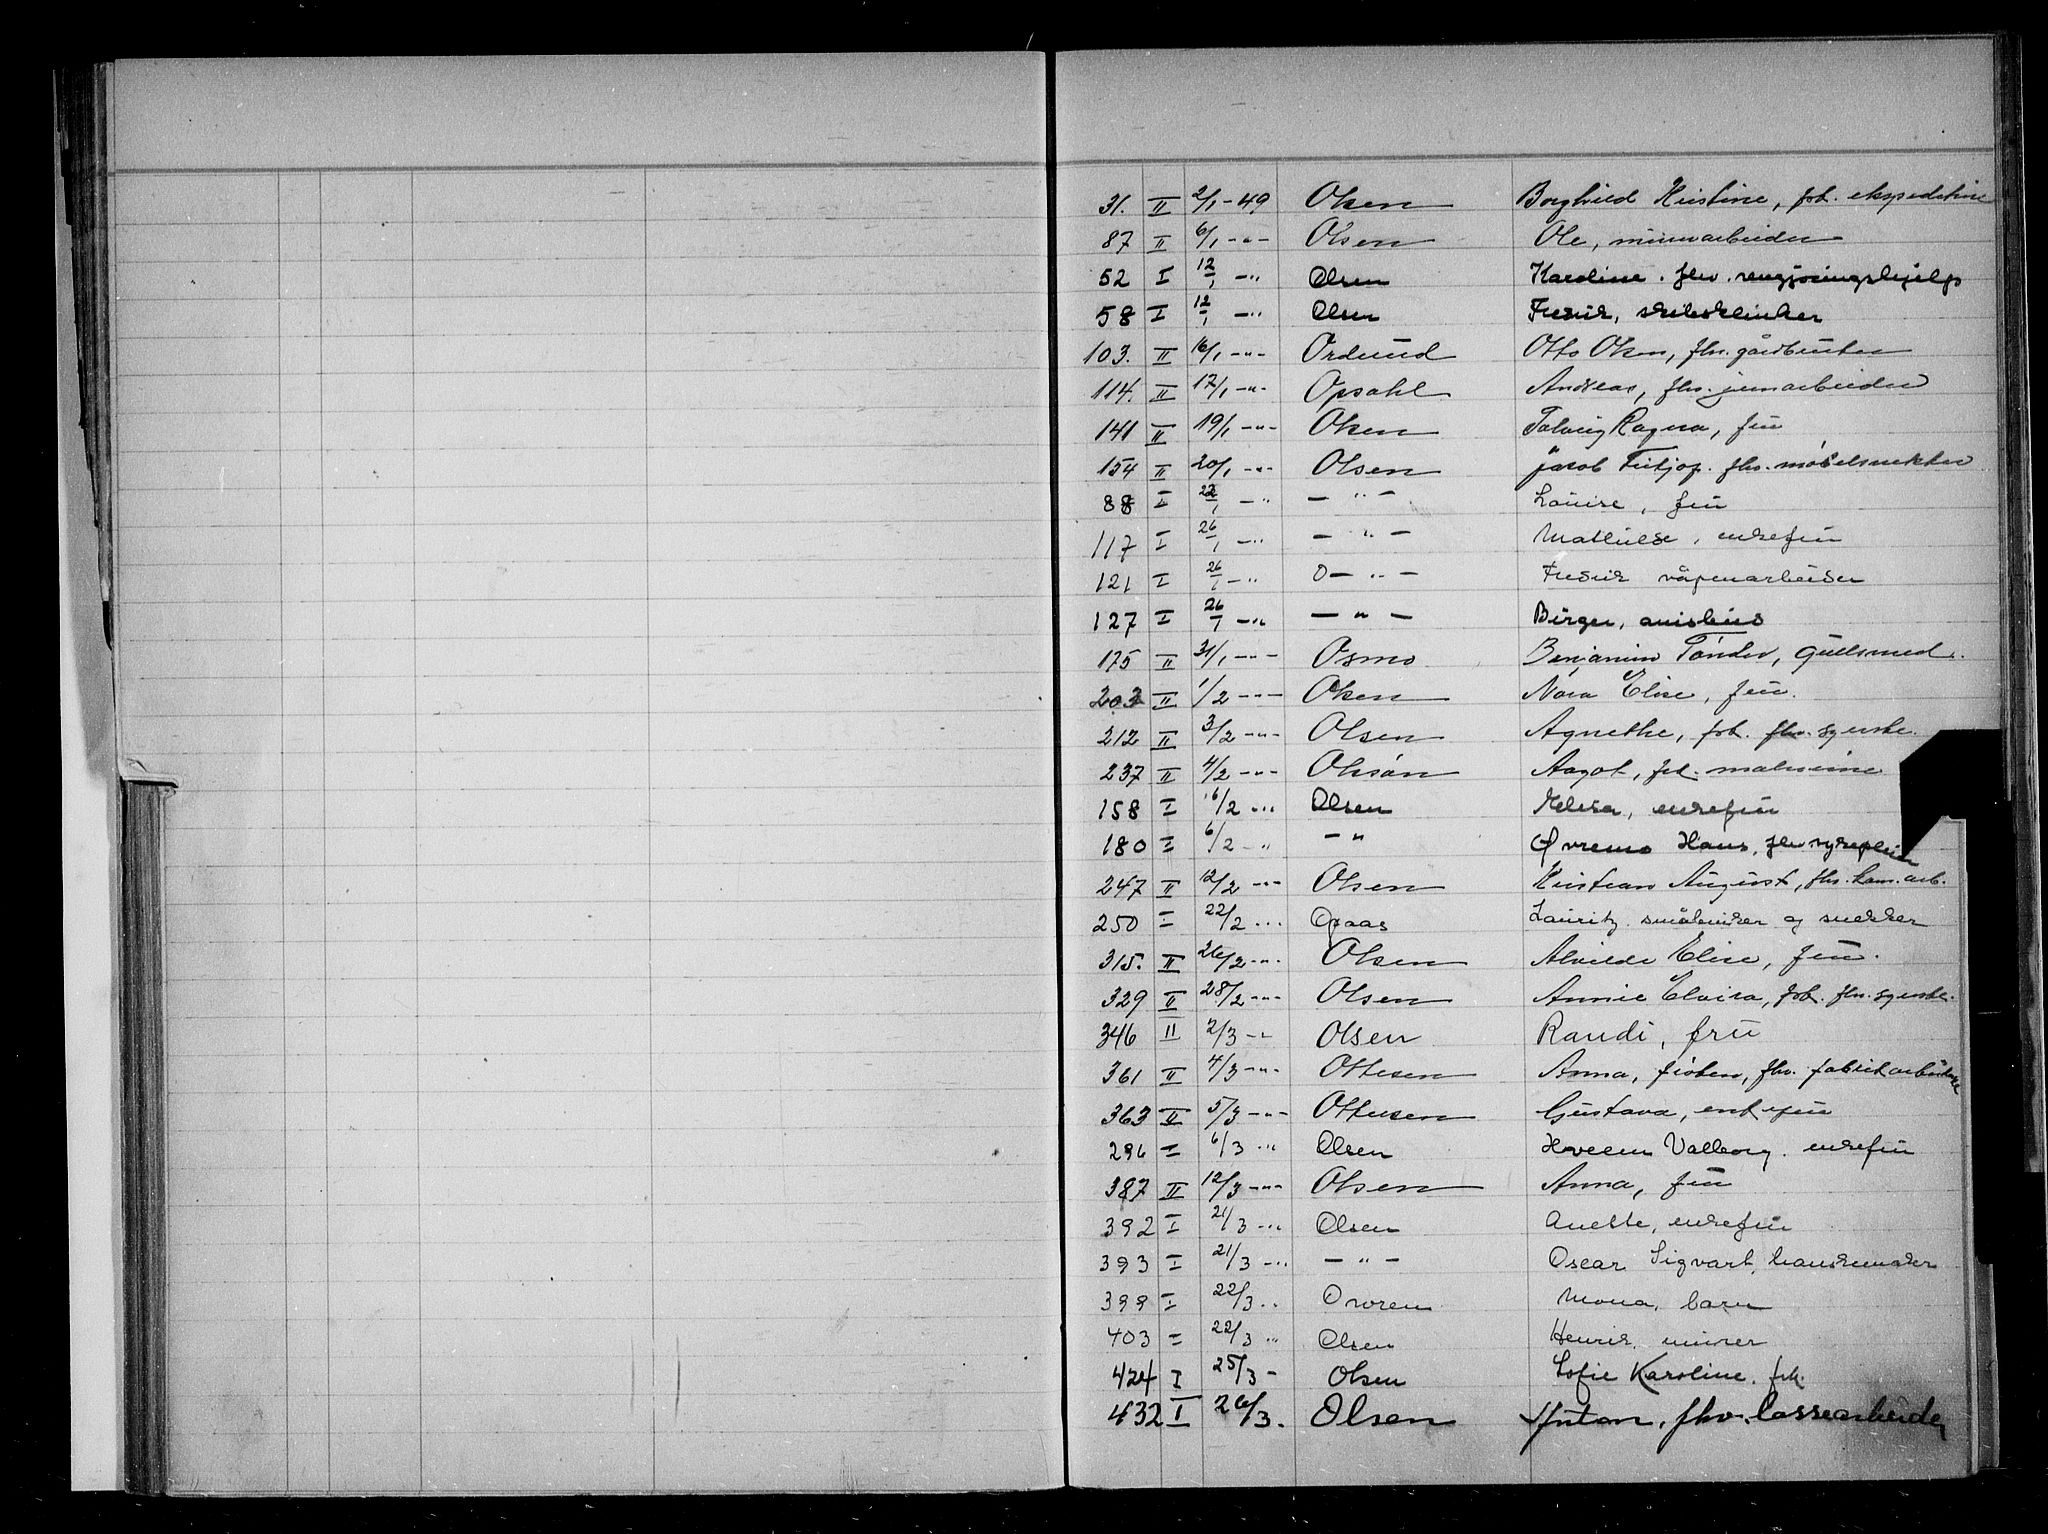 31. II 2/1 - 49 Olsen Borghild Kristine, frk. ekspeditrise
87 II 6/1 -"- Olsen Ole, murerarbeider
52 I 12/1 -" Olsen Karoline. fhv. rengjøringshjelp
58 I 12/1 -" Olsen Fredrik, skibsklinker
103. II 16/1 -"- Ordund Otto Olsen, fhv. gårdbruker
114. II 17/1 -"- Opsahl Andreas, fhv. jernarbeider
141 II 19/1 -"- Olsen Solveig Ragna, fru
154 II 20/1 -"- Olsen Jacob Fritjof. fhv. møbelsnekker
88 I 22/1 -" -"- Louise, fru
117 I 26/1 -" -"- Mathilde, enkefru
121 I 26/1 -" O-"- Fredrik våpenarbeider
127 I 26/1 -" -"- Birger,
175 II 31/1 -"- Osmo Benjamin Tønder, gullsmed.
203 II 1/2 -"- Olsen Nora Elise, fru.
212 II 3/2 -"- Olsen Agnethe, frk. fhv. syerske.
237 II 4/2 -"- Olsøn Aagot, frk. malerinne
158 I 16/2 -" Olsen Helma, enkefru
180 I 6/2 -" -" Øvremo Hans, fhv sykepleier
247 II 12/2 -"- Olsen Kristian August, fhv. kom. arb.
250 I 22/2 ... Opaas Lauritz. småbruker og snekker
315. II 26/2 -"- Olsen Alvilde Elise, fru.
329 II 28/2 -"- Olsen Annie Elvira, frk. fhv. syerske.
346 II 2/3 -" Olsen Randi, fru
361 II 4/3 -"- Ottesen Anna, frøken, fhv. fabrikarbeiderske
363 II 5/3 -"- Ottesen Gustava, enkefru
296 I 6/3 " Olsen Hveem Valborg. enkefru
387 II 12/3 -"- Olsen Anna, fru
392 I 21/3 -" Olsen Anette, enkefru
393 I 21/3 -" -"- Oscar Sigvart, hanskemaker
399 I 22/3 " Ovren Mona, barn
403 I 22/3 " Olsen Henrik, murer
424 I 25/3 - Olsen Sofie Karoline. frk.
432 I 26/3. Olsen Anton, fhv. lossearbeider